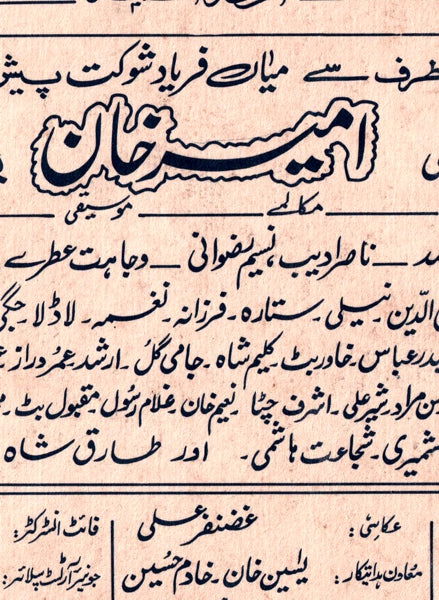 طرف سے میاں فریاد شوکت پیش
امیر خان
مکالمے ـ موسیقی
ناصر ادیب، نسیم رضوانی ـ وجاہت عطرے
الدّین۔ نیلی۔ ستارہ۔ فرزانہ۔ نغمہ۔ لاڈلا۔ جگی
عباس۔ خاور بٹ۔ کلیم شاہ۔ جامی گُل۔ ارشد عمر دراز۔
مراد۔ شیر علی۔ اشرف چٹا۔ نعیم خان۔ غلام رسول۔ مقبول بٹ۔
شمیری۔ شجاعت ہاشمی۔ اور طارق شاہ
عکاسی: غضنفر علی فائٹ انسٹرکٹر:
معاون ہدایتکار: یٰسین خان۔ خادم حسین جونیئر آرٹسٹ سپلائر: